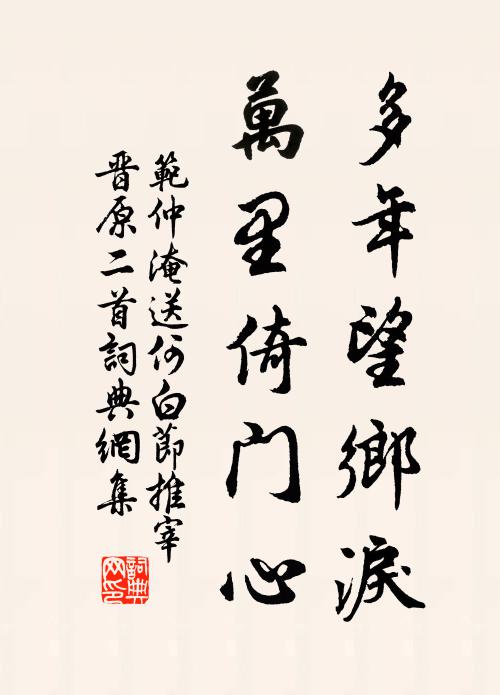 多年望鄉淚
萬里倚门心
範仲淹送何白節推宰
晉原二首詞典網集
詞典
网印